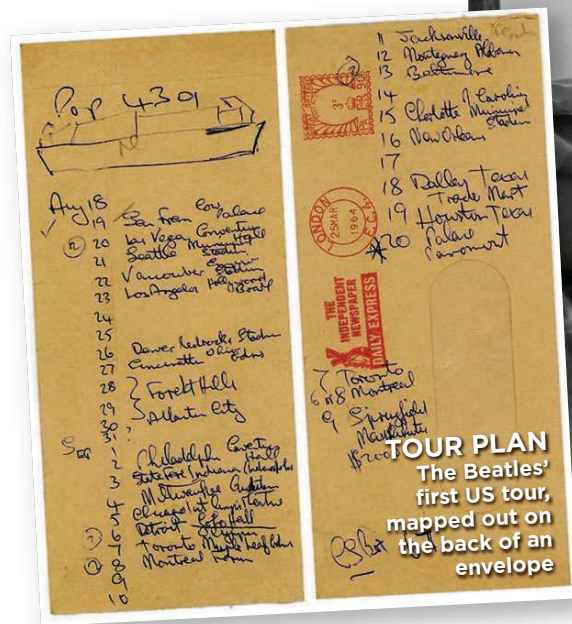 Pop 4391
Aug 18
19 San Fran Cow Palace
(2) 20 Las Vegas Convention
21 Seattle Municipal Stadium
22 Vancouver Empire Stadium
23 Los Angeles Hollywood Bowl
24
25
26 Denver Redrocks Stadium
27 Cincinatti Ohio Gdns
28 } Forest Hills
29
30 } Atlantic City
31
Sep 1
2 Philadelphia Convention Hall
3 State Fair Indiana Indianapolis
4 Milwaukee Auditorium
5 Chicago Int Amphitheatre
6 Detroit
7 Toronto Maple Leaf Gdns
(2) 8 Montreal Forum
9
10
11 Jacksonville
12 Montgomery Alabama
(2) 13 Baltimore
14
15 Charlotte N Carolina Municipal Stadium
16 New Orleans
17
18 Dallas Texas
Trade Mart
19 Houston Texas
*20 Palace
Paramount
LONDON
25 MAR
1964
E.C.4
THE
INDEPENDENT
NEWSPAPER
DAILY EXPRESS
7 Toronto
6 or 8 Montreal
9 Springfield
TOUR PLAN
The Beatles'
first US tour,
mapped out on
the back of an
envelope